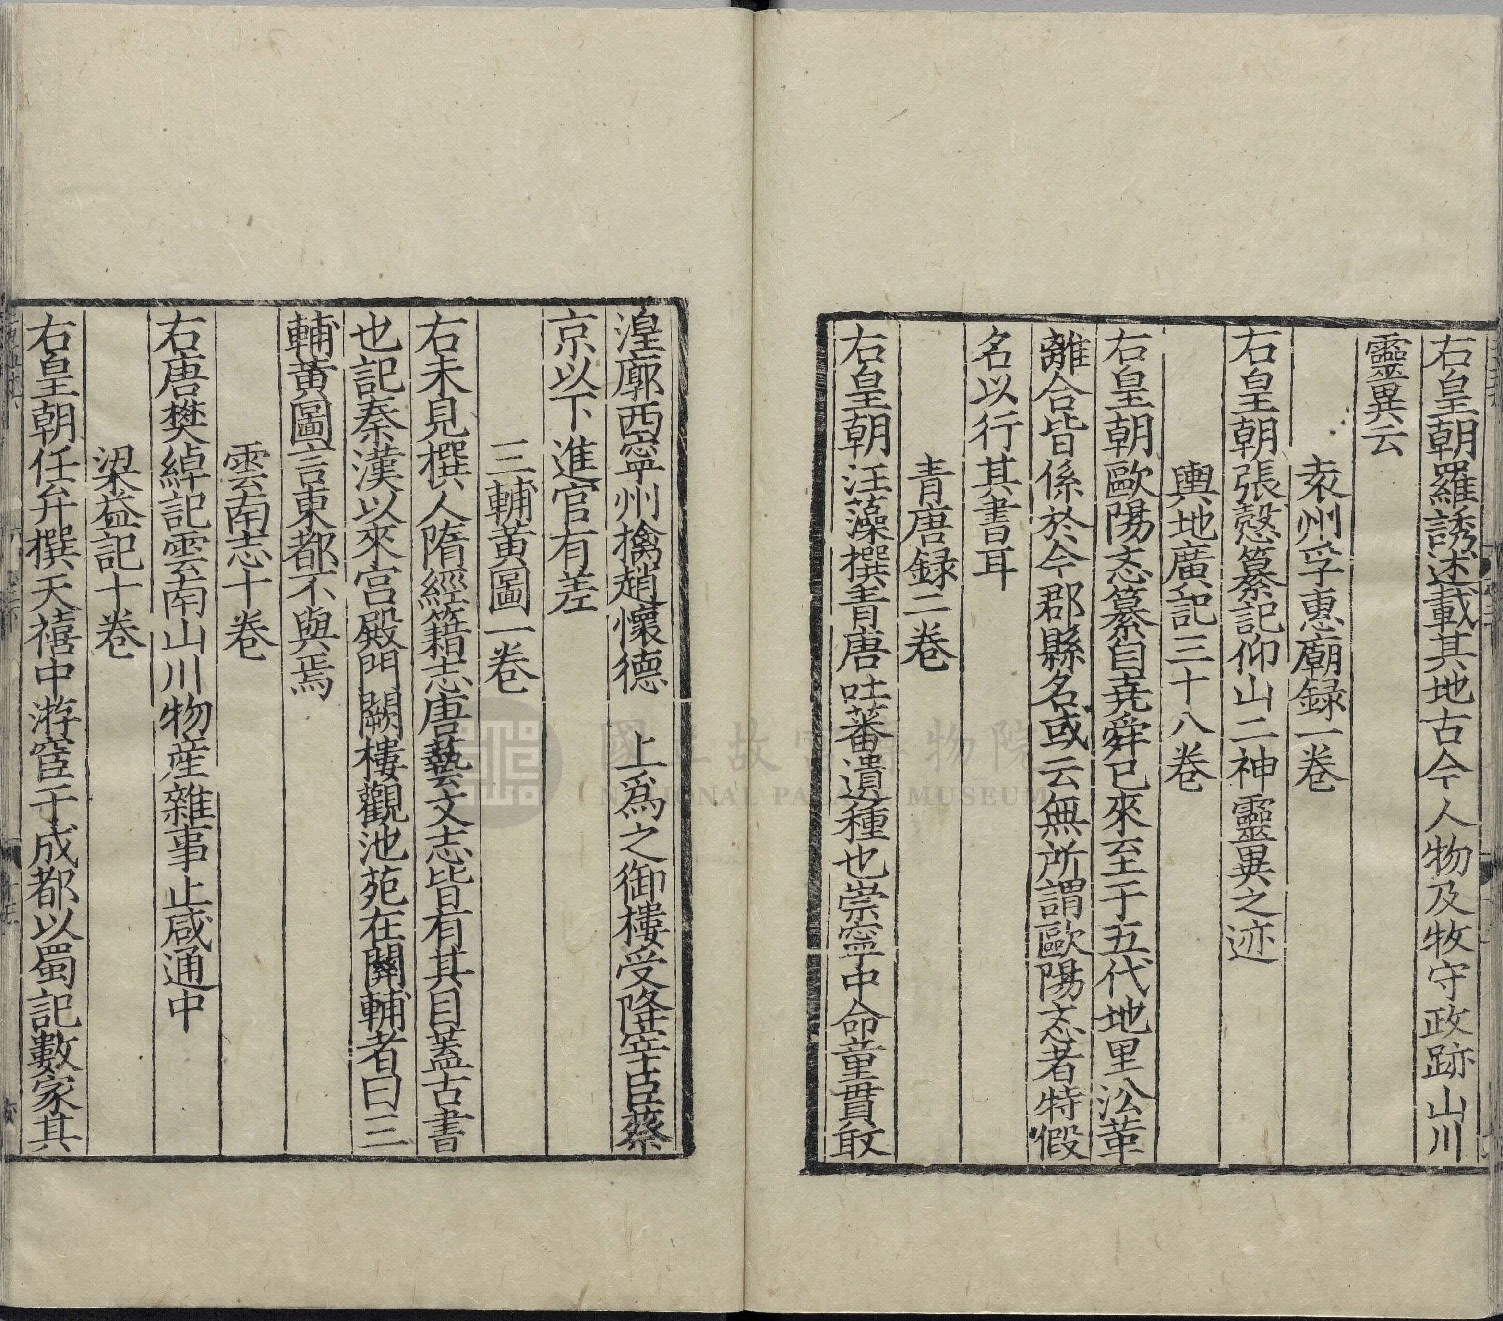 右皇朝羅誘述載其地古今人物及牧守政跡山川
靈異云
袁州孚惠廟録一卷
右皇朝張慤纂記仰山二神靈異之迹
輿地廣記三十八卷
右皇朝歐陽忞纂自堯舜已來至于五代地里沿革
離合皆係於今郡縣名或云無所謂歐陽忞者特假
名以行其書耳
青唐録二卷
右皇朝汪藻撰青唐吐蕃遺種也崇寧中命童貫取
湟廓西寧州擒趙懷德　上爲之御樓受降宰臣蔡
京以下進官有差
三輔黃圖一卷
右未見撰人隋經籍志唐藝文志皆有其目蓋古書
也記秦漢以來宮殿門闕樓觀池苑在關輔者曰三
輔黃圖言東都不與焉
雲南志十卷
右唐樊綽記雲南山川物産雜事止咸通中
梁益記十卷
右皇朝任弁撰天禧中游宦于成都以蜀記數家其
國立故宮博物院
NATIONAL PALACE MUSEUM